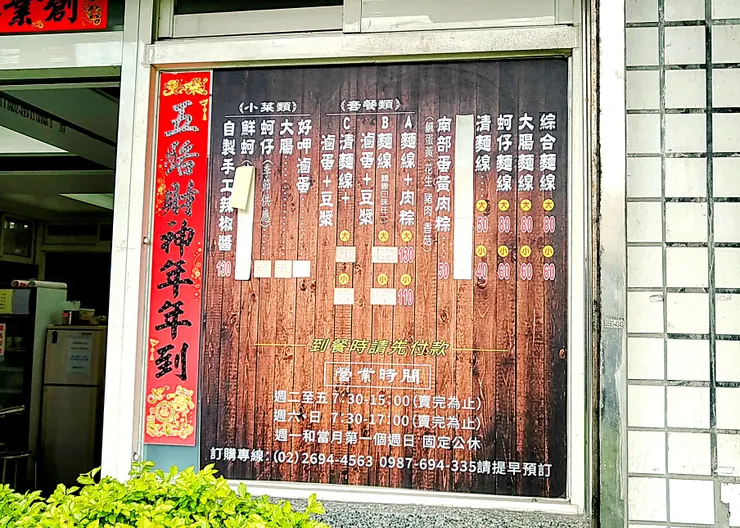 創業
五路財神年年到
綜合麵線 大80 小60
大腸麵線 大80 小60
蚵仔麵線 大80 小60
清麵線 大50 小40
南部蛋黃肉粽 50
(鹹蛋黃/花生/豬肉/香菇)
《套餐類》
A麵線+肉粽 大130 小110
B麵線
滷蛋+豆漿 大 小
C清麵線+
滷蛋+豆漿 大 小
《小菜類》
好呷滷蛋
大腸
蚵仔
鮮蚵
自製手工辣椒醬 130
到餐時請先付款
營業時間
週二至五 7:30-15:00(賣完為止)
週六.日 7:30-17:00(賣完為止)
週一和當月第一個週日 固定公休
訂購專線:(02)2694-4563 0987-694-335請提早預訂